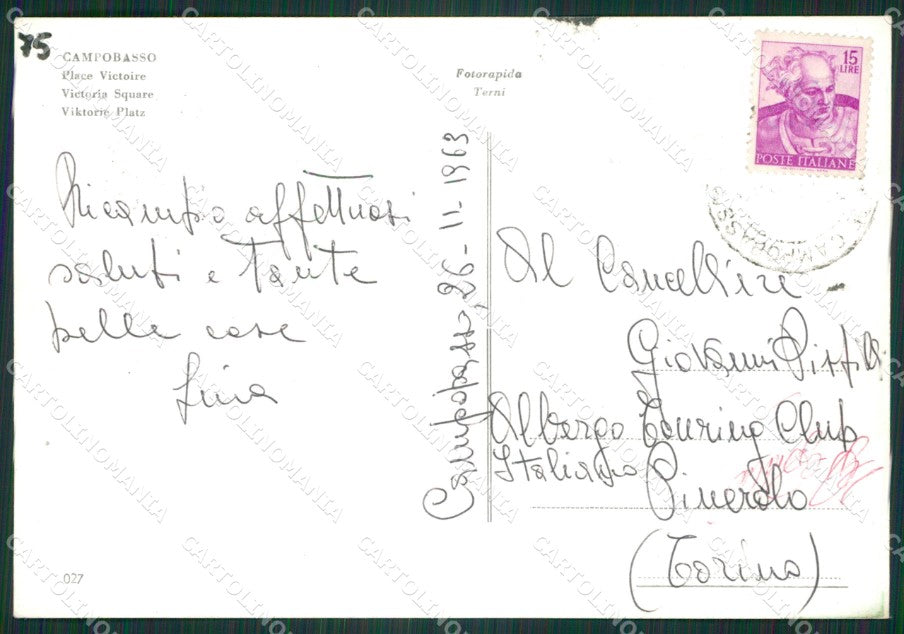 75
CAMPOBASSO
Place Victoire
Victoria Square
Viktorie Platz
Fotorapida
Terni
15
LIRE
POSTE ITALIANE
CAMPOBASSO
Ricambio affettuosi
saluti e tante
belle cose
Lina
Campobasso, 26-11-1963
Al Cancelliere
Giovanni
Albergo Touring Club
Italiano
Pinerolo
(Torino)
027
CARTOLINOMANIA